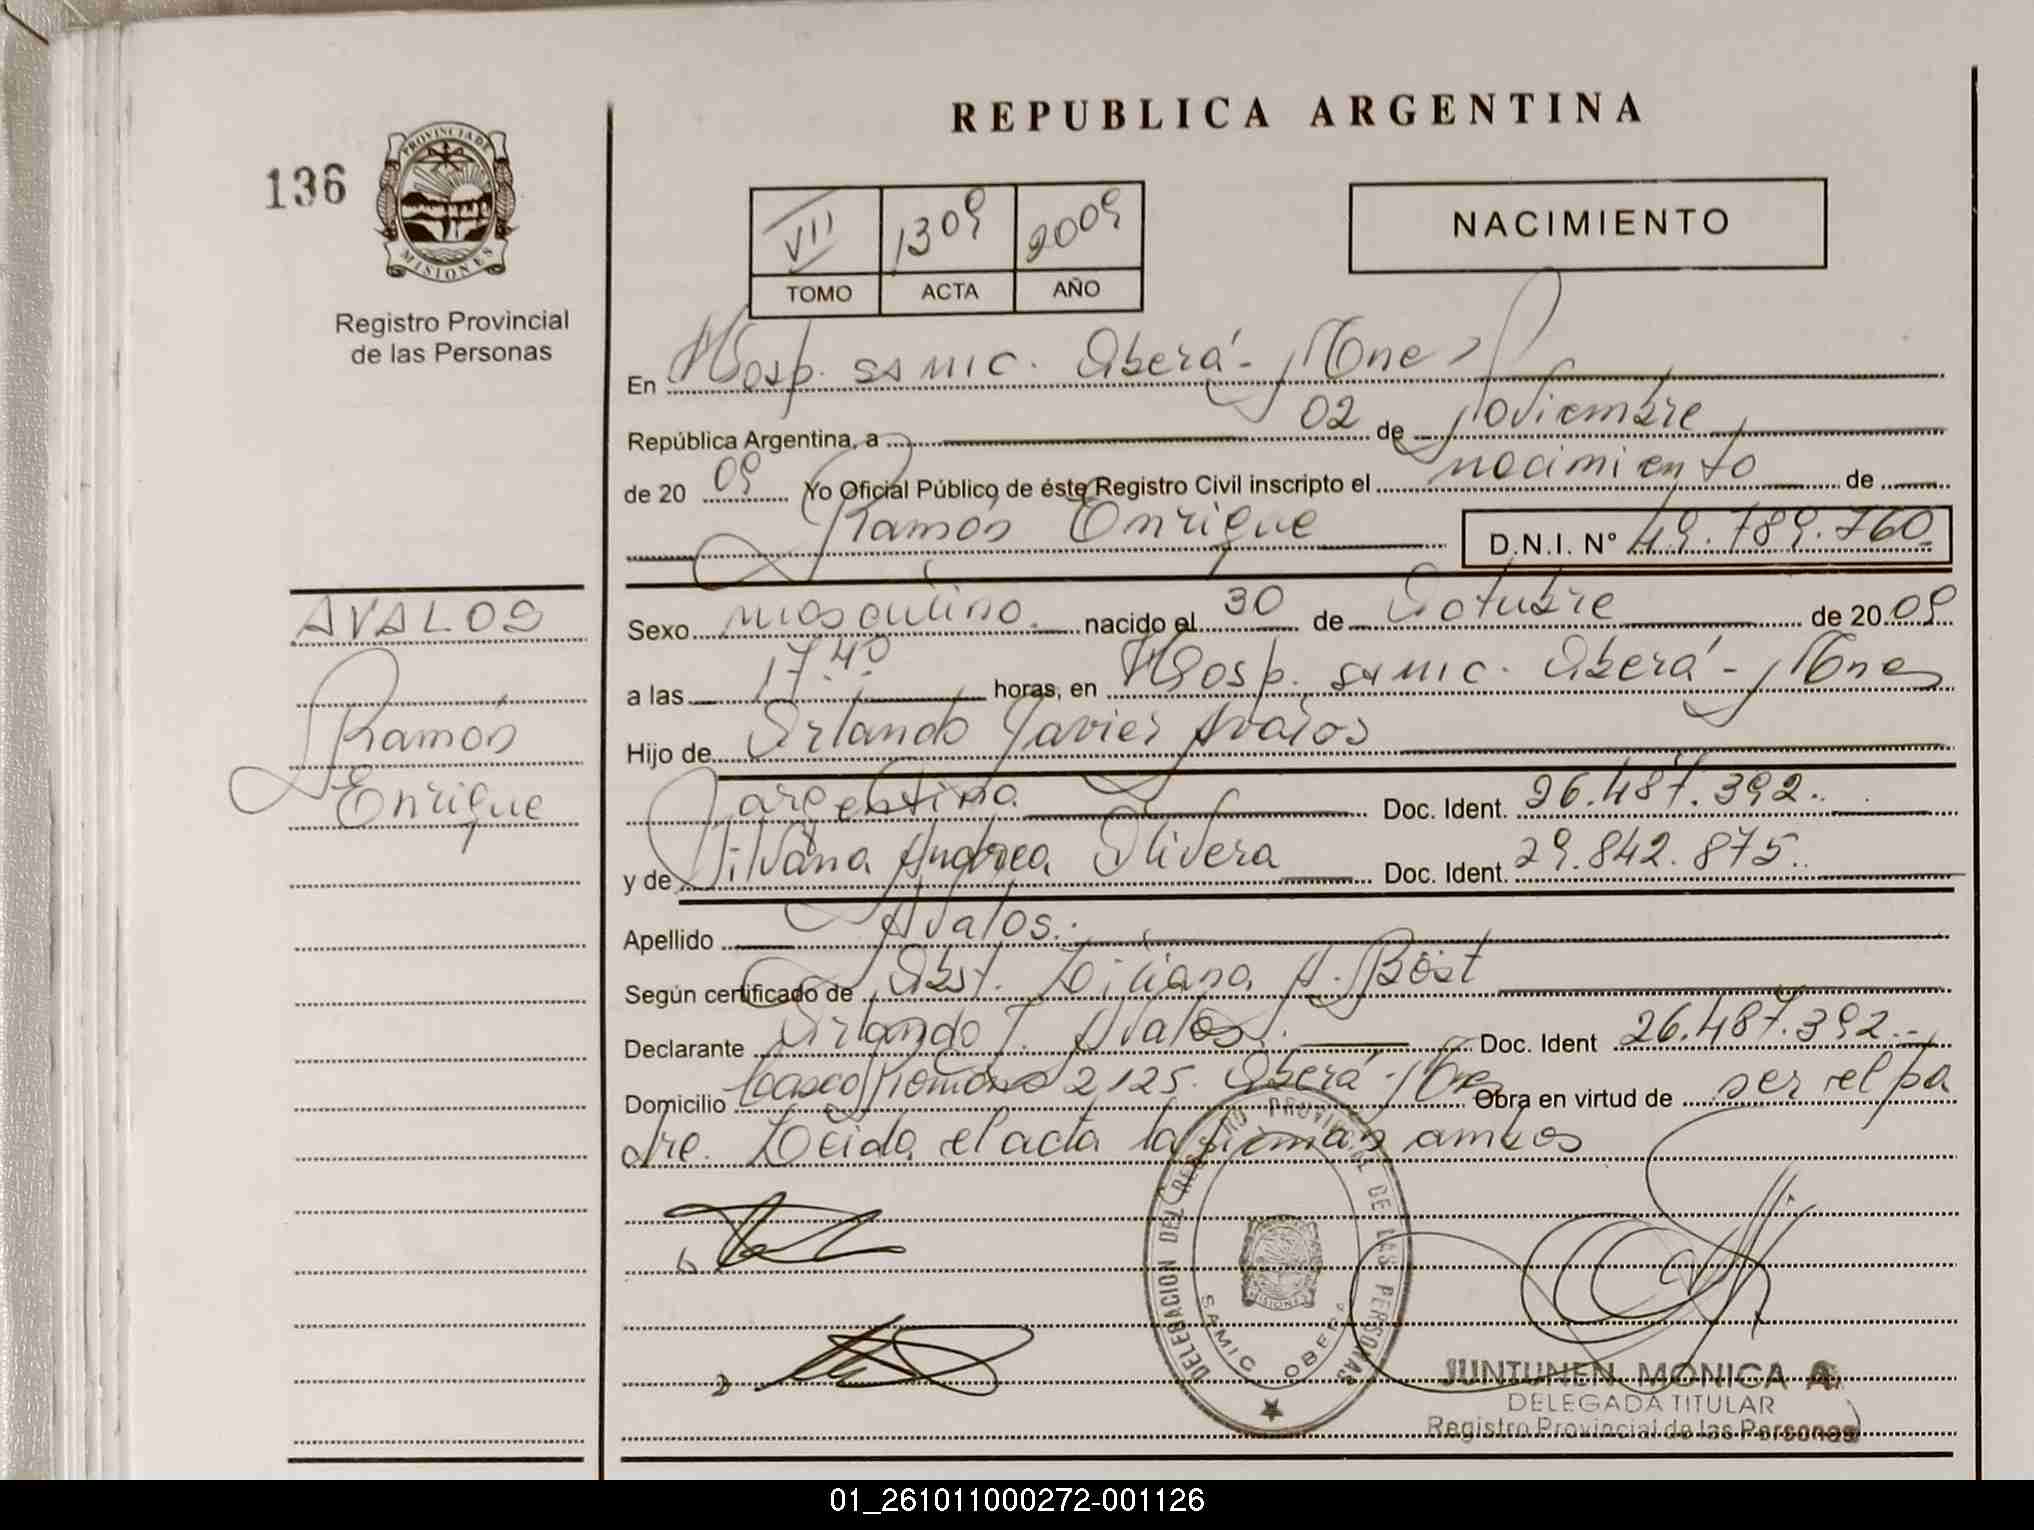 REPUBLICA ARGENTINA
136
PROVINCIA DE
MISIONES
Registro Provincial
de las Personas
VII 1309 2009
TOMO ACTA AÑO
NACIMIENTO
En Hosp. SAMIC. Oberá - Mnes
República Argentina, a 02 de Noviembre
de 20 09 Yo Oficial Público de éste Registro Civil inscripto el nacimiento de
Ramón Enrique D.N.I. N° 49.789.760.
AVALOS
Ramón
Enrique
Sexo masculino. nacido el 30 de Octubre de 20 09
a las 17.40 horas, en Hosp. SAMIC. Oberá - Mnes
Hijo de Orlando Javier Avalos
argentino Doc. Ident. 26.487.392.
y de Silvana Andrea Olivera Doc. Ident. 29.842.875.
Apellido Avalos.
Según certificado de Obst. Liliana A. Böst
Declarante Orlando J. Avalos. Doc. Ident 26.487.392.-
Domicilio 2125. Oberá - Mnes Obra en virtud de ser el pa
dre. Leida el acta la firman ambos
DELEGACION DEL REGISTRO PROVINCIAL DE LAS PERSONAS
MISIONES
SAMIC OBERA
JUNTUNEN MONICA A.
DELEGADA TITULAR
Registro Provincial de las Personas
01_261011000272-001126